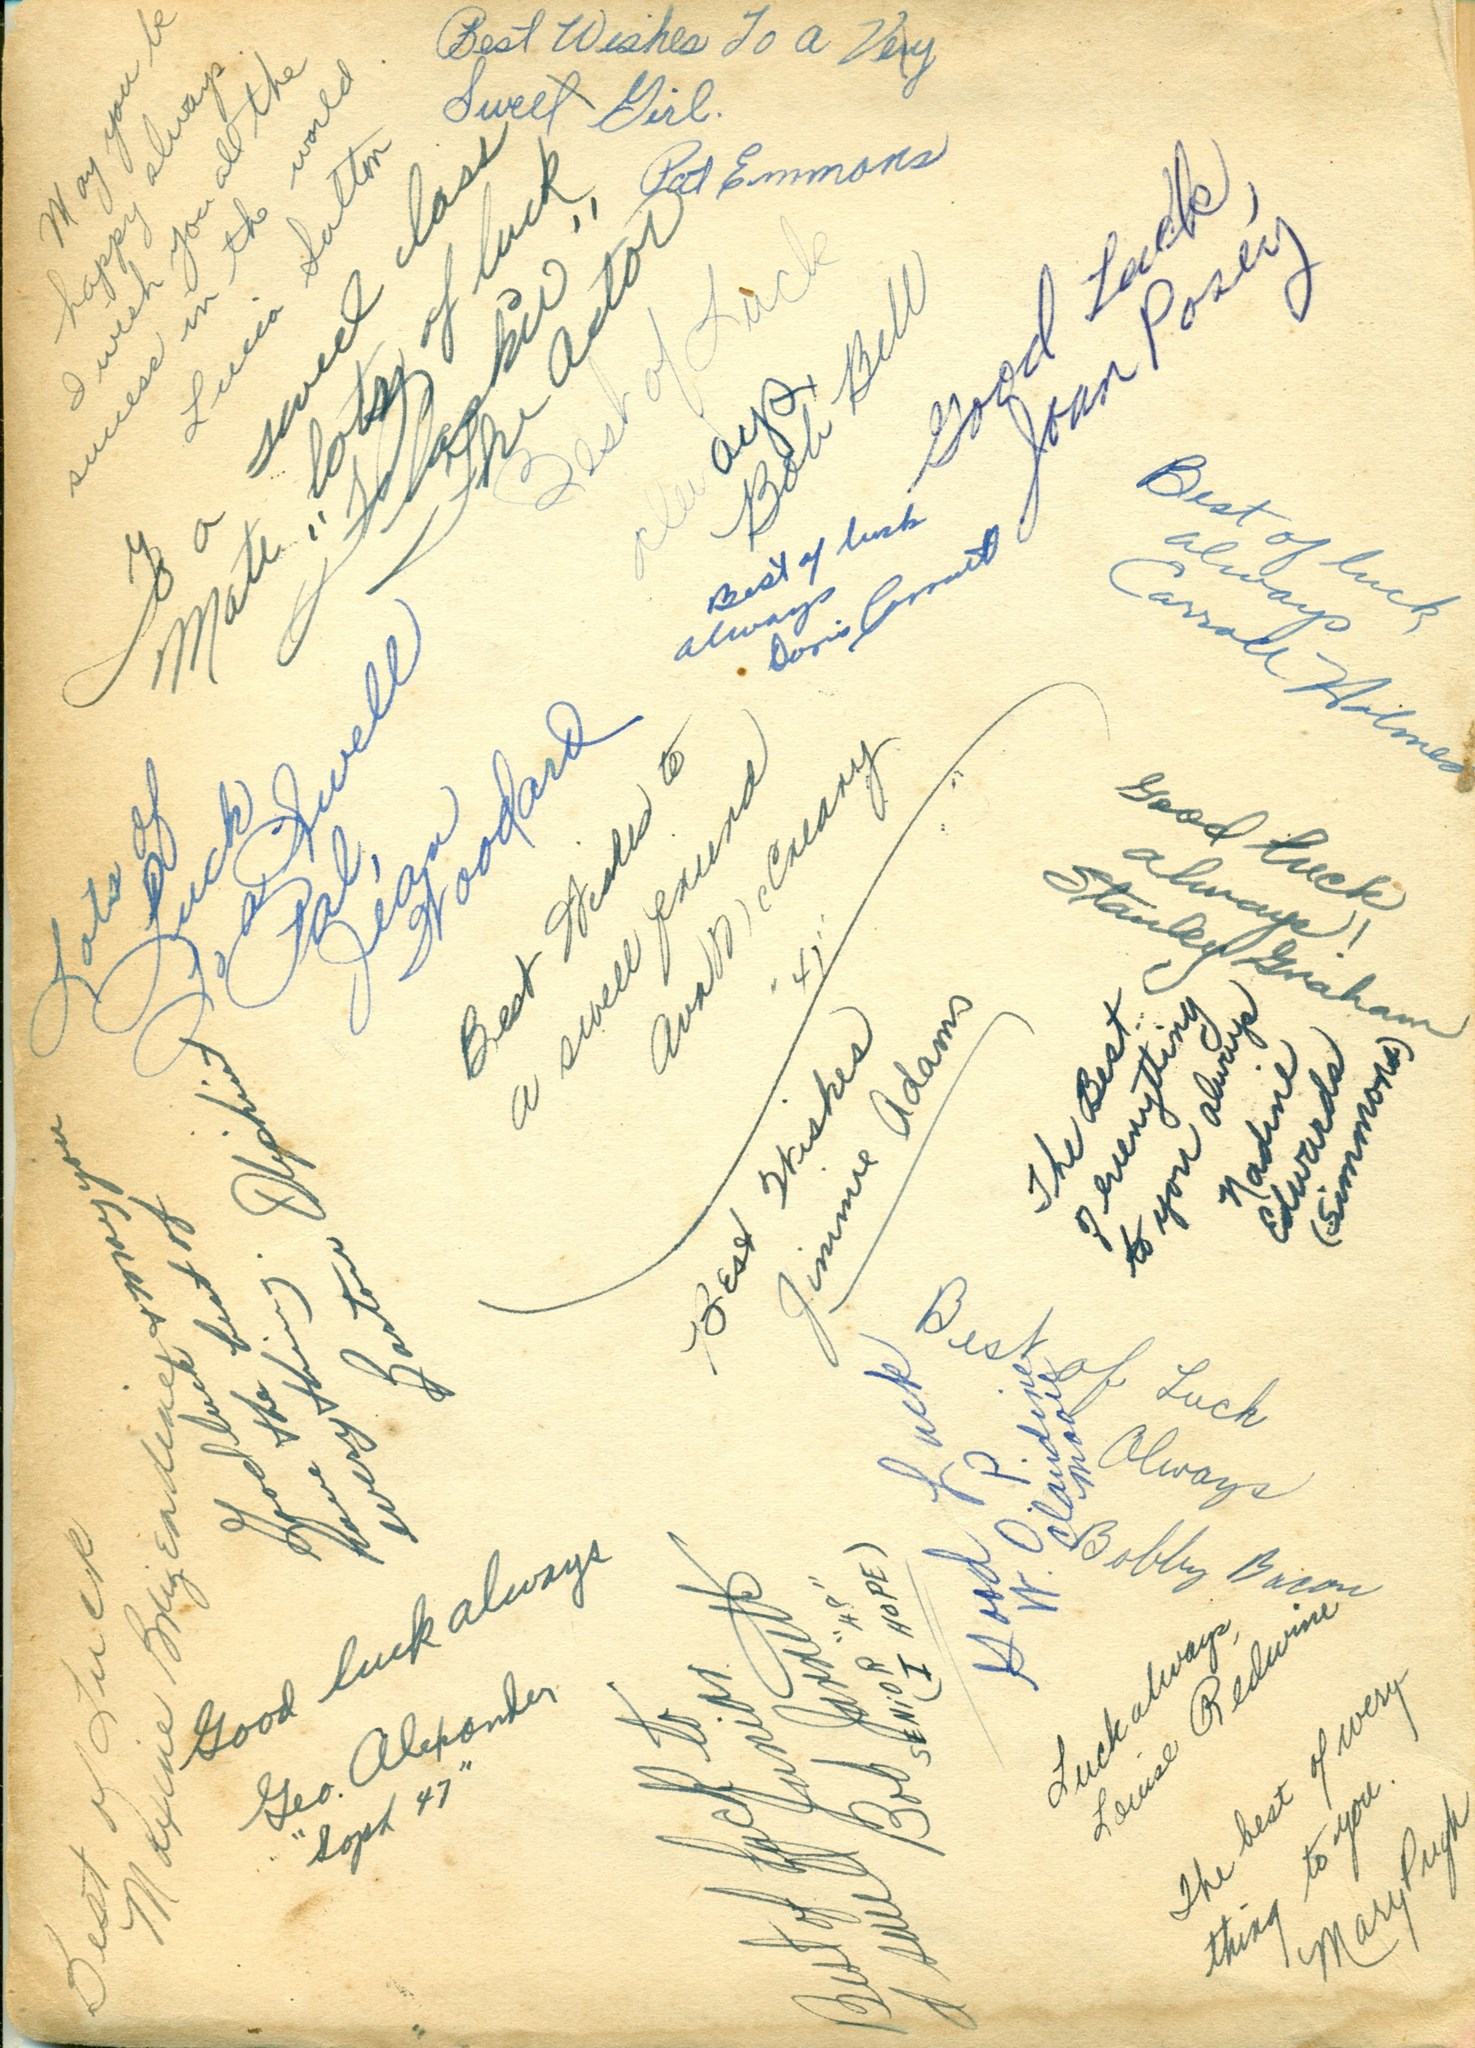 Best Wishes To a Very
Sweet Girl.
Pat Emmons
May you be
happy always.
I wish you all the
success in the world.
Lucia Sutton
To a swell class
Mate "lots of luck,
"The actor
Best of Luck
always,
Bob Bell
Good Luck,
Joan Posey
Best of luck
always
Doris
Best of luck,
always
Carroll Holmes
Lots of
Luck
To a Swell
Pal,
Jean
Woodard
Best Wishes to
a swell friend
Ava McCreary
"47"
Good luck
always!
Stanley Graham
The Best
of everything
to you always
Nadine
Edwards
(Simmons)
Best Wishes
Jimmie Adams
Good luck & may you
have the best of
everything.
Barton
Best of Luck
Maxine Brizendine
Good Luck
W. P.
Claudine
Moore
Best of Luck
Always
Bobby Bacon
Good luck always
Geo. Alexander
"Soph 47"
Best of luck to
a swell Junior
Bob Garrett
"H?"
SENIOR
(I HOPE)
Luck always,
Louise Redwine
The best of every-
thing to you.
Mary Pugh